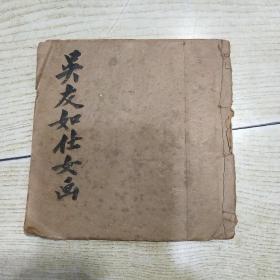 吴友如仕女画